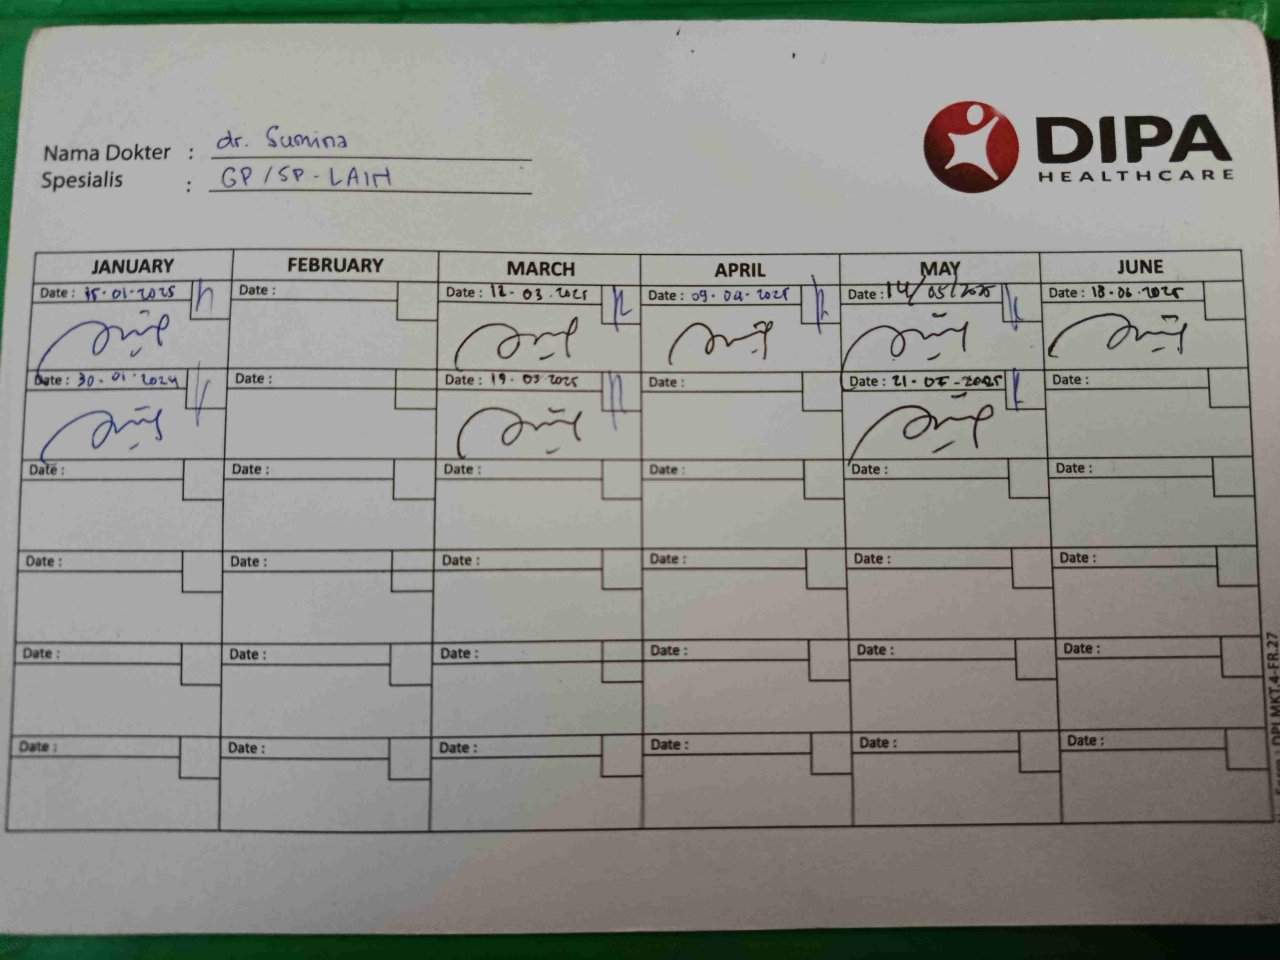 DIPA
HEALTHCARE
Nama Dokter : dr. Sumina
Spesialis : GP / SP - LAIN
JANUARY FEBRUARY MARCH APRIL MAY JUNE
Date : 15-01-2025 Date : Date : 12-03-2025 Date : 09-04-2025 Date : 14/05/2025 Date : 18-06-2025
Date : 30-01-2024 Date : Date : 19-03 2025 Date : Date : 21-05-2025 Date :
Date : Date : Date : Date : Date : Date :
Date : Date : Date : Date : Date : Date :
Date : Date : Date : Date : Date : Date :
Date : Date : Date : Date : Date : Date :
DPI.MKT.4-FR.27